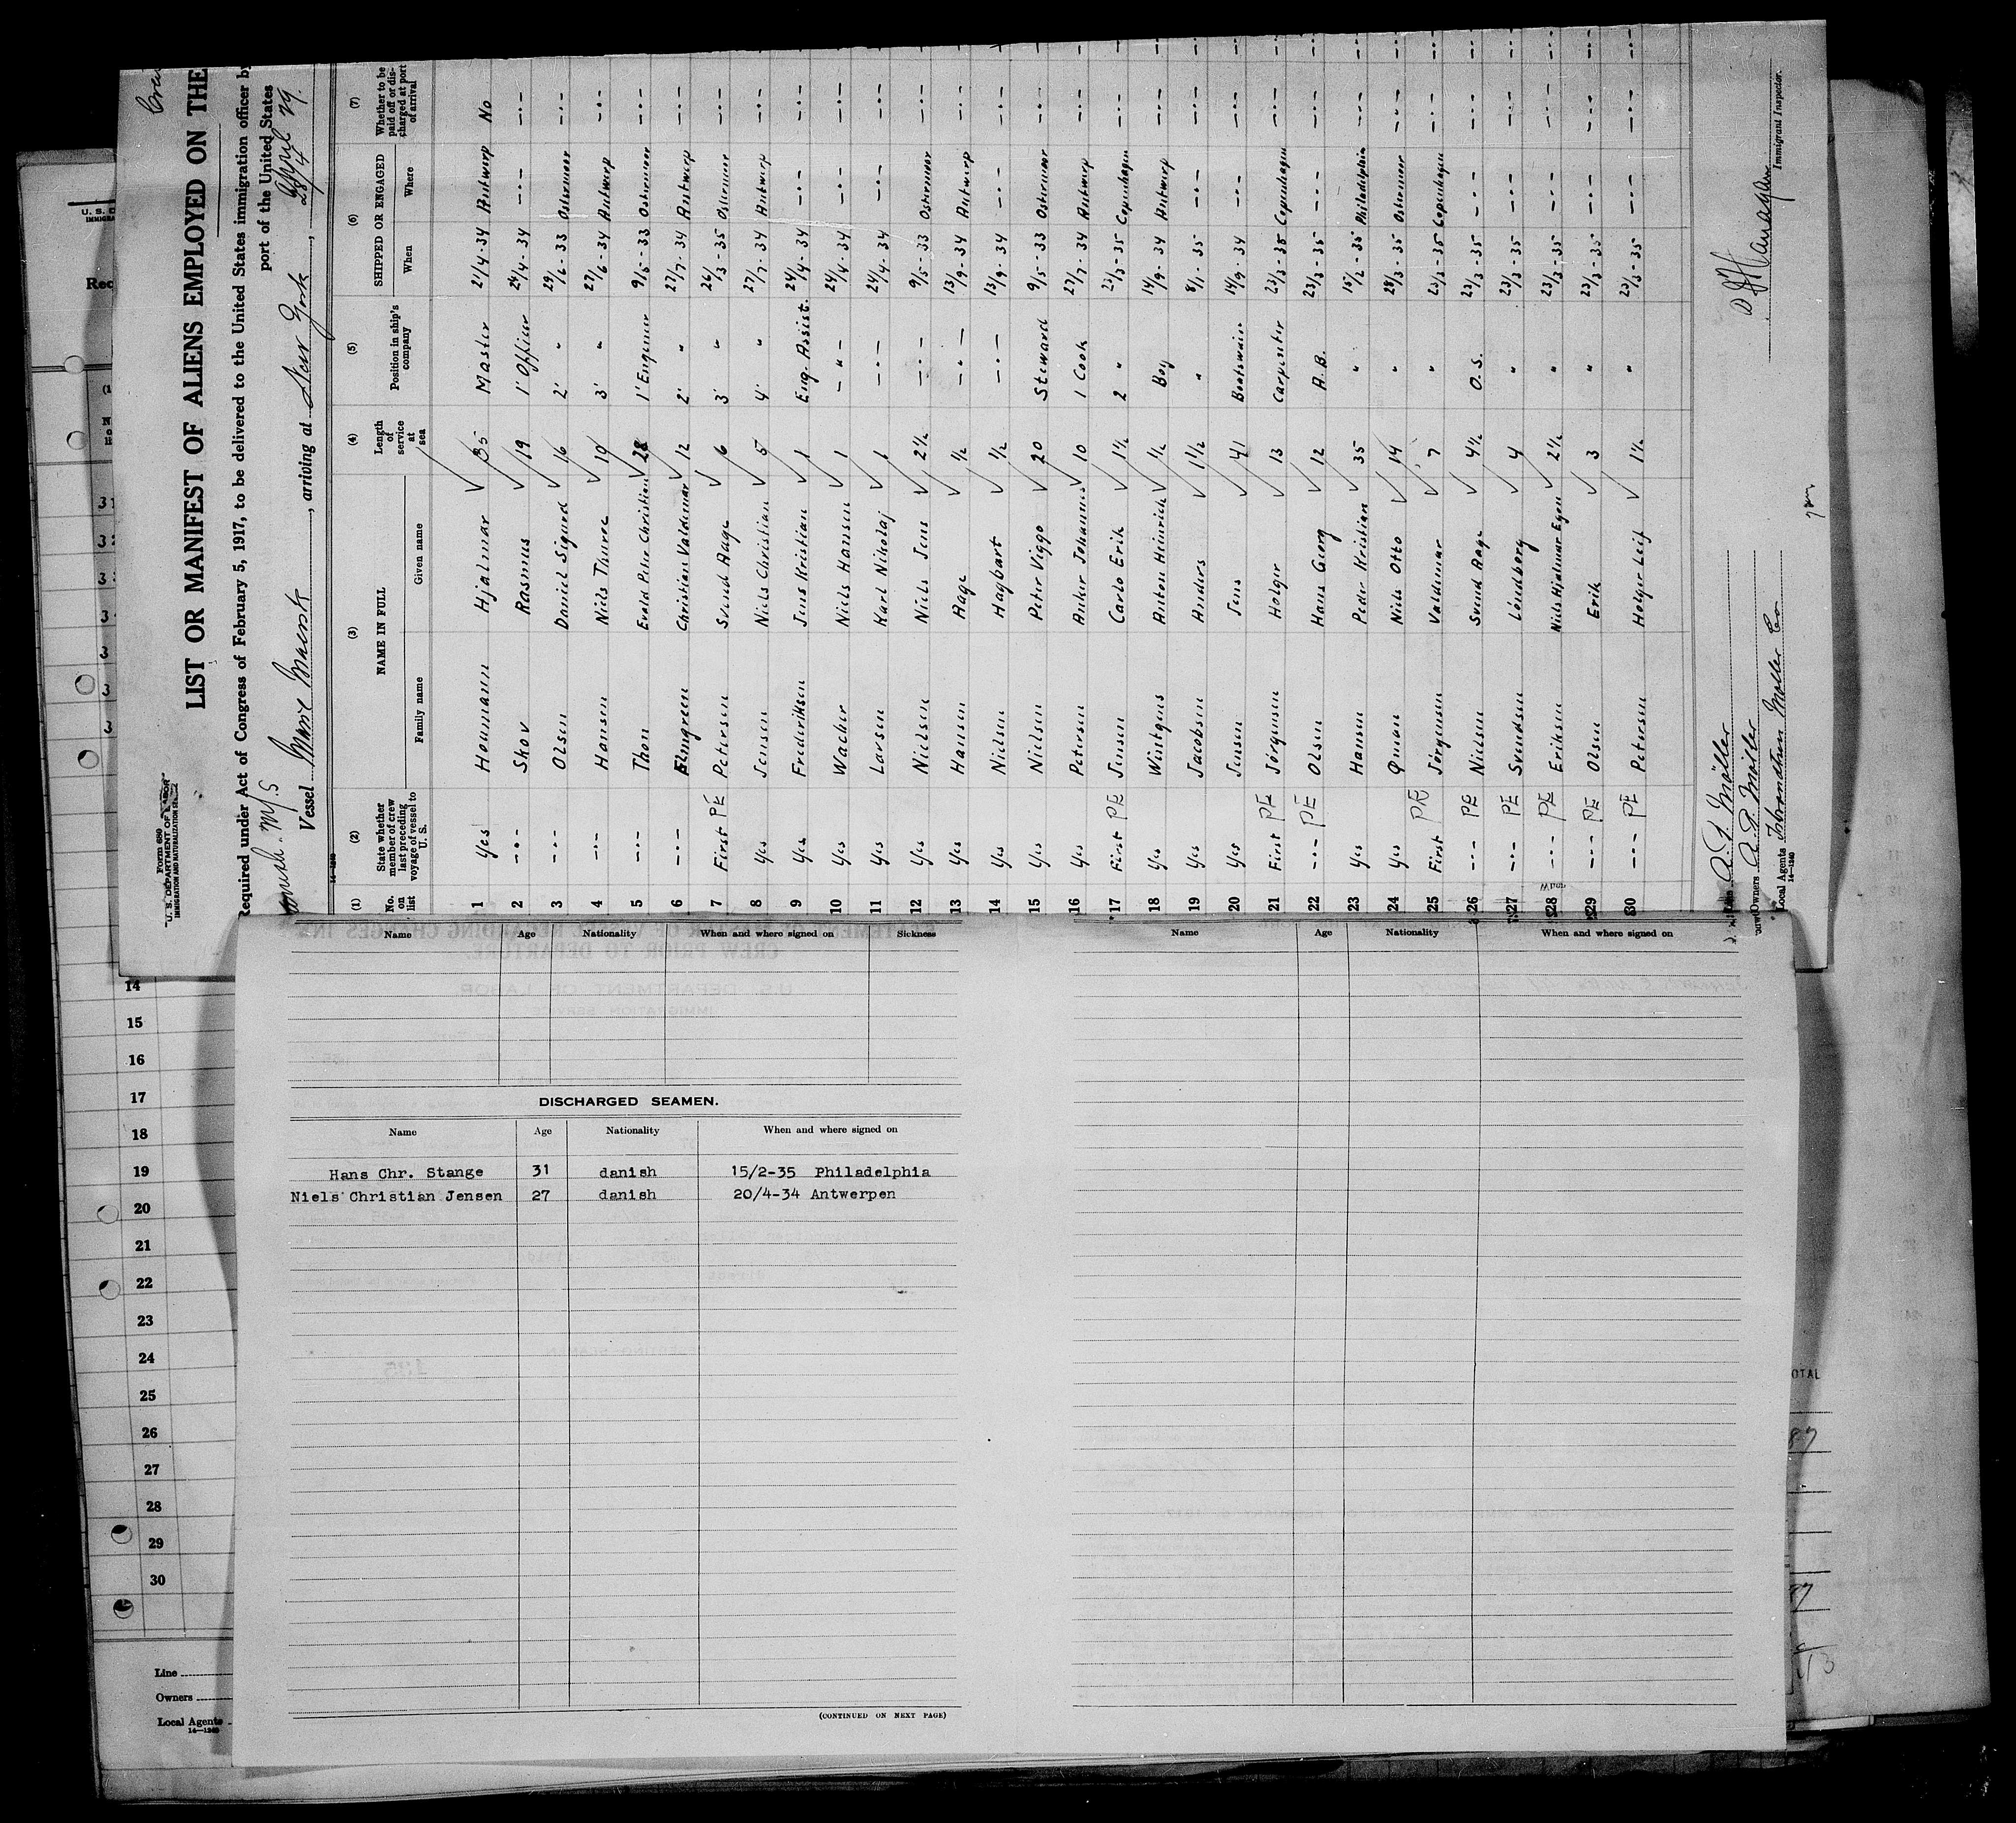 LIST OR MANIFEST OF ALIENS EMPLOYED ON THE
Required under Act of Congress of February 5, 1917, to be delivered to the United States immigration officer by
port of the United States
Form 689
U. S. DEPARTMENT OF LABOR
IMMIGRATION AND NATURALIZATION SERVICE
M/S
Vessel Marie Maersk, arriving at New York, April 29.
(1) (2) (3) (4) (5) (6) (7)
No. on list State whether member of crew last preceding voyage of vessel to U. S. NAME IN FULL Family name Given name Length of service at sea Position in ship's company SHIPPED OR ENGAGED When Where Whether to be paid off or discharged at port of arrival
1 Yes Houmann Hjalmar 35 Master 21/4-34 Antwerp No
2 -"- Skov Rasmus 19 1' Officer 24/4-34 -"- -"-
3 -"- Olsen Daniel Sigurd 16 2' " 29/6-33 Ostermoor -"-
4 -"- Hansen Niels Thurre 19 3' " 27/6-34 Antwerp -"-
5 -"- Thon Evald Peter Christian 28 1' Engineer 9/5-33 Ostermoor -"-
6 -"- Elmgreen Christian Valdemar 12 2' " 27/7-34 Antwerp -"-
7 First PE Petersen Svend Aage 6 3' " 26/3-35 Ostermoor -"-
8 Yes Jensen Niels Christian 5 4' " 27/7-34 Antwerp -"-
9 Yes Frederiksen Jens Kristian 1 Eng. Assist. 24/4-34 -"- -"-
10 Yes Wacher Niels Hansen 1 -"- 24/4-34 -"- -"-
11 Yes Larsen Karl Nikolaj 1 -"- 24/4-34 -"- -"-
12 Yes Nielsen Niels Jens 2½ -"- 9/5-33 Ostermoor -"-
13 Yes Hansen Aage ½ -"- 13/9-34 Antwerp -"-
14 Yes Nielsen Hagbart ½ -"- 13/9-34 -"- -"-
15 Yes Nielsen Peter Viggo 20 Steward 9/5-33 Ostermoor -"-
16 Yes Petersen Anker Johannes 10 1 Cook 27/7-34 Antwerp -"-
17 First PE Jensen Carlo Erik 1½ 2 " 23/3-35 Copenhagen -"-
18 Yes Wintgens Anton Heinrich ½ Boy 14/9-34 Antwerp -"-
19 Yes Jacobsen Anders 1½ " 8/1-35 -"- -"-
20 Yes Jensen Jens 41 Boatswain 14/9-34 -"- -"-
21 First PE Jørgensen Holger 13 Carpenter 23/3-35 Copenhagen -"-
22 -"- PE Olsen Hans Georg 12 A.B. 23/3-35 -"- -"-
23 Yes Hansen Peder Kristian 35 " 15/2-35 Philadelphia -"-
24 Yes Niels Otto 14 " 28/3-35 Ostermoor -"-
25 First PE Jørgensen Valdemar 7 " 23/3-35 Copenhagen -"-
26 -"- PE Nielsen Svend Aage 4½ O.S. 23/3-35 -"- -"-
27 -"- PE Svendsen Løndborg 4 " 23/3-35 -"- -"-
28 -"- PE Eriksen Niels Hjalmar Egon 2½ " 23/3-35 -"- -"-
29 -"- PE Olsen Erik 3 " 23/3-35 -"- -"-
30 -"- PE Petersen Holger Leif 1½ " 23/3-35 -"- -"-
A. P. Möller
Owners A. P. Möller
Local Agents Moller Co
14—1240
Immigrant Inspector.
Name Age Nationality When and where signed on Sickness
Name Age Nationality When and where signed on
DISCHARGED SEAMEN.
Name Age Nationality When and where signed on
Hans Chr. Stange 31 danish 15/2-35 Philadelphia
Niels Christian Jensen 27 danish 20/4-34 Antwerpen
(CONTINUED ON NEXT PAGE)
14
15
16
17
18
19
20
21
22
23
24
25
26
27
28
29
30
Line
Owners
Local Agents
14—1240